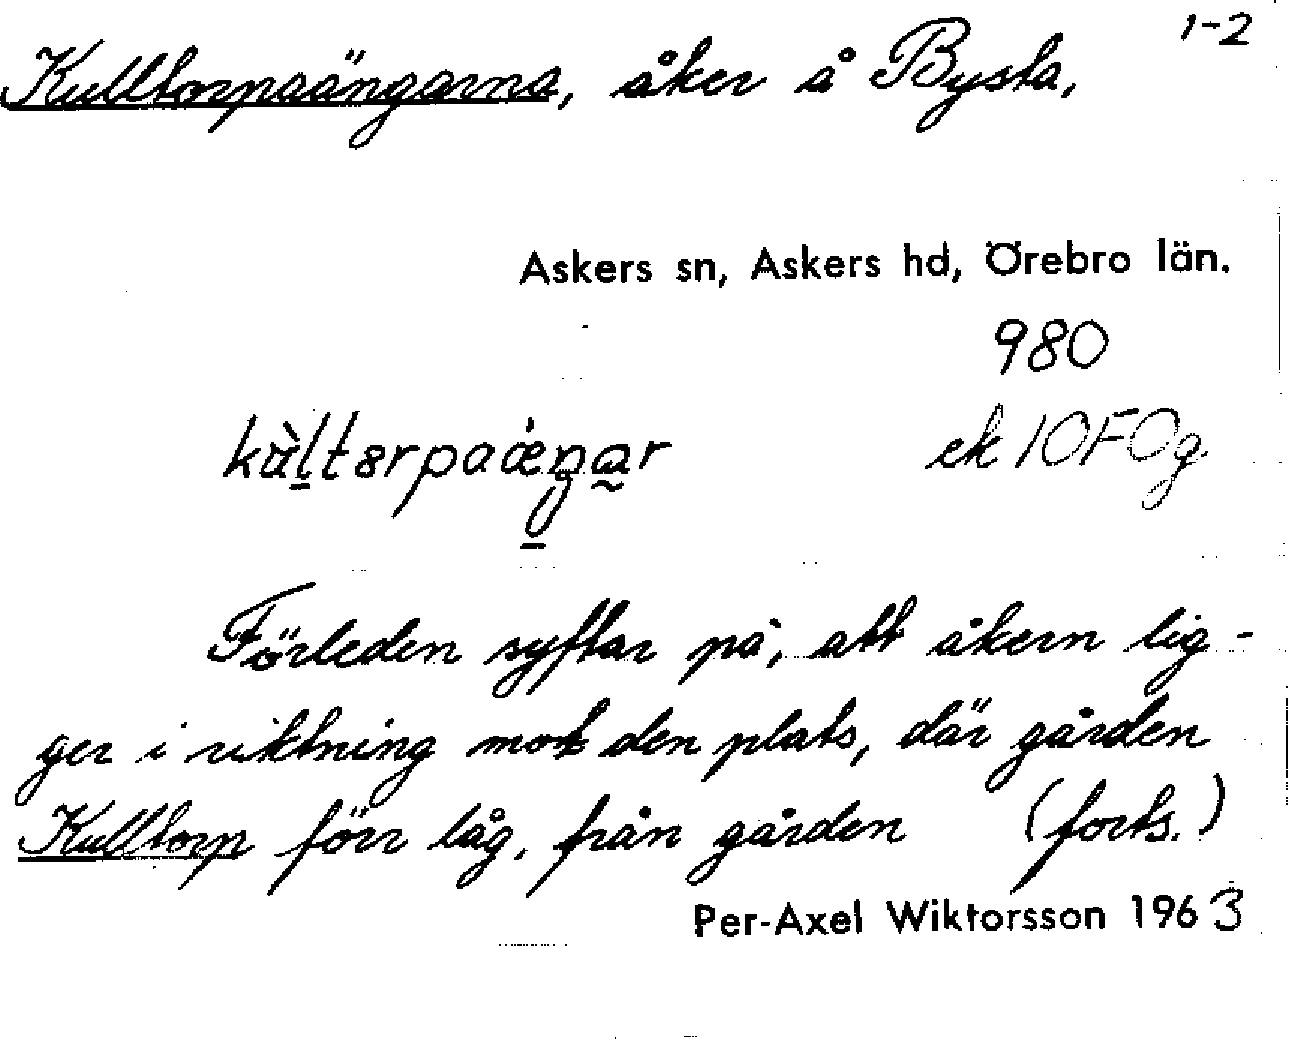 1-2
Kulltorpaängarna, åker å Bysta,
Askers sn, Askers hd, Örebro län.
980
ek 10F0g
Förleden syftar på, att åkern lig-
ger i riktning mot den plats, där gården
Kulltorp förr låg, från gården (forts.)
Per-Axel Wiktorsson 1963